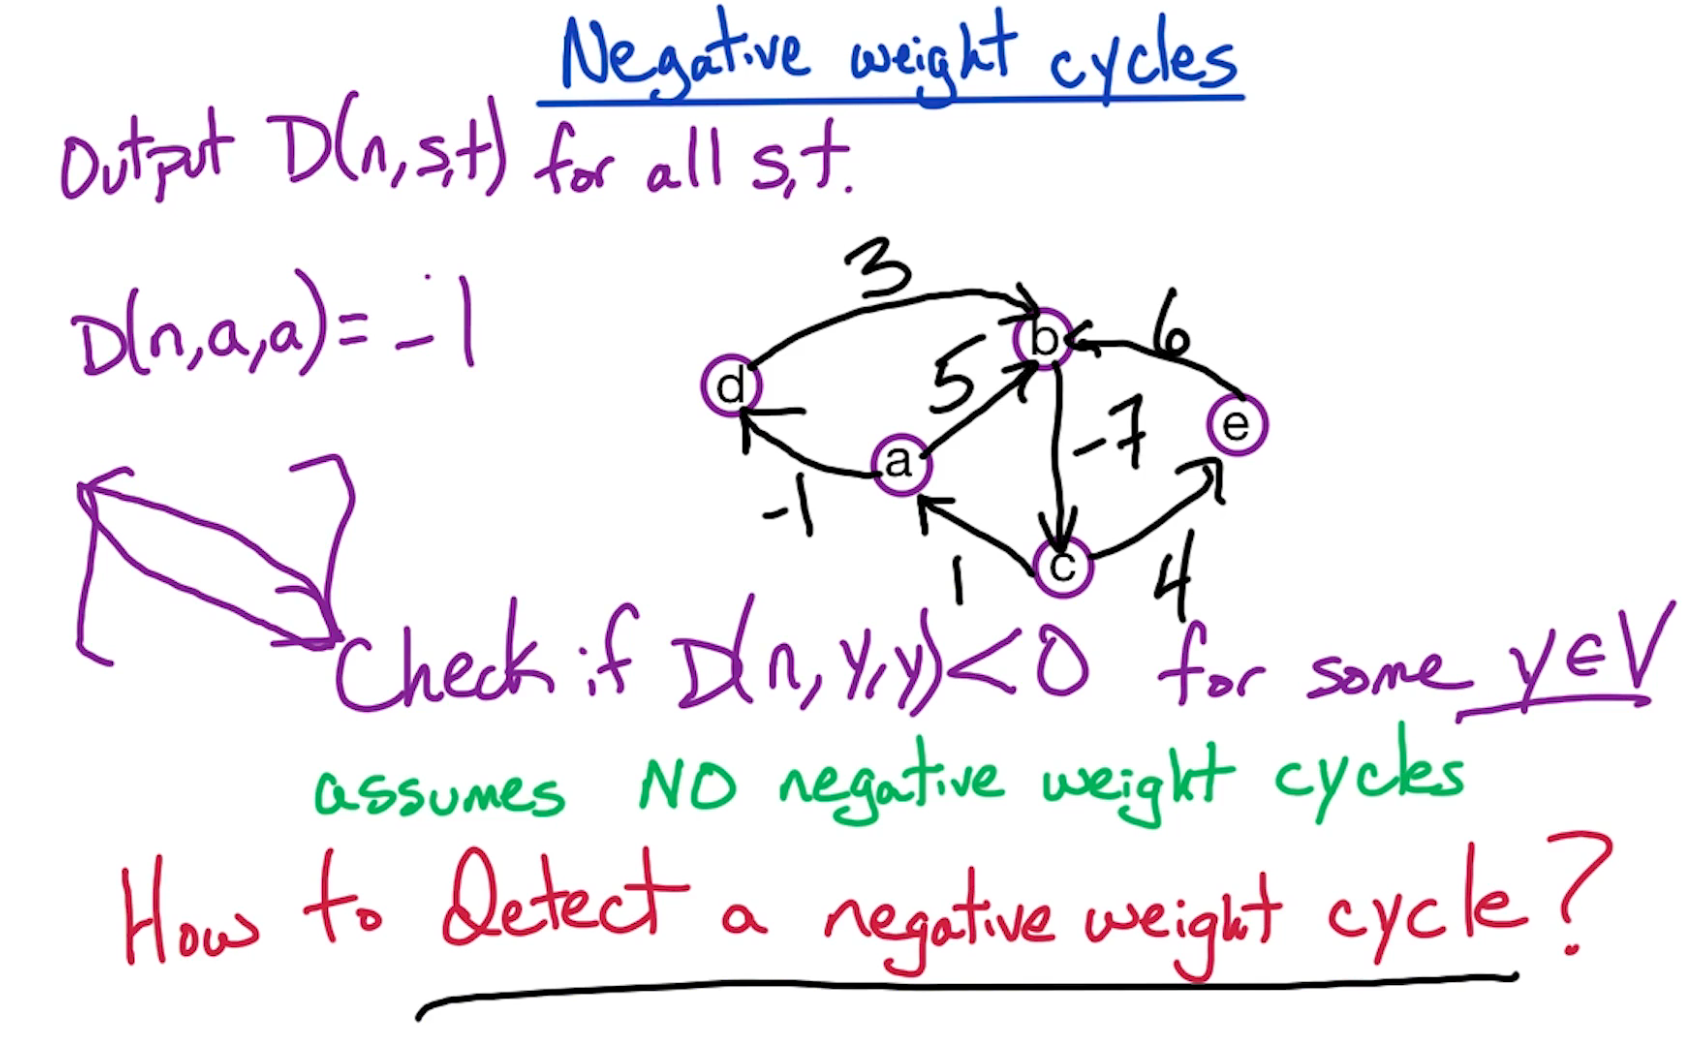 Negative weight cycles
Output D(n,s,t) for all s,t.
D(n,a,a) = -1
3
b
6
5
d
-7
e
a
-1
c
1
4
Check if D(n,y,y)<0 for some y∈V
assumes NO negative weight cycles
How to Detect a negative weight cycle?